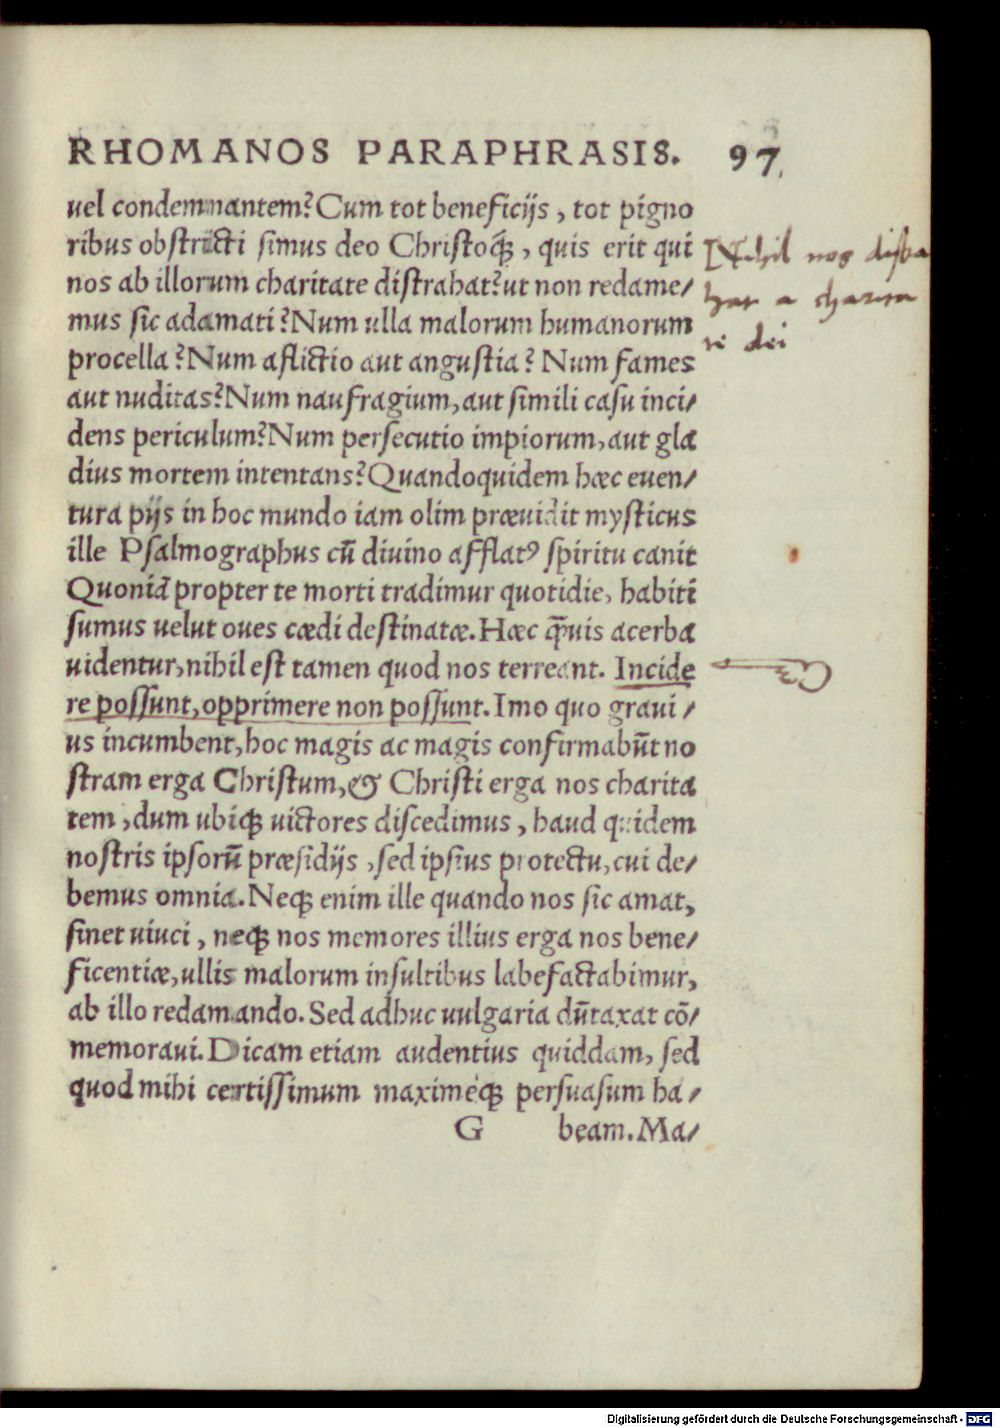 RHOMANOS PARAPHRASIS. 97
uel condemnantem? Cum tot beneficijs, tot pigno
ribus obstricti simus deo Christoq́ꝫ, quis erit qui
nos ab illorum charitate distrahat? ut non redame/
mus sic adamati? Num ulla malorum humanorum
procella? Num aflictio aut angustia? Num fames
aut nuditas? Num naufragium, aut simili casu inci/
dens periculum? Num persecutio impiorum, aut gla
dius mortem intentans? Quandoquidem hæc euen/
tura pijs in hoc mundo iam olim præuidit mysticus
ille Psalmographus cũ diuino afflatꝰ spiritu canit
Quoniã propter te morti tradimur quotidie, habiti
sumus uelut oues cædi destinatæ. Hæc q̃uis acerba
uidentur, nihil est tamen quod nos terreant. Incide
re possunt, opprimere non possunt. Imo quo graui/
us incumbent, hoc magis ac magis confirmabũt no
stram erga Christum, & Christi erga nos charita
tem, dum ubiqꝫ uictores discedimus, haud quidem
nostris ipsorũ præsidijs, sed ipsius protectu, cui de/
bemus omnia. Neqꝫ enim ille quando nos sic amat,
sinet uinci, neqꝫ nos memores illius erga nos bene/
ficentiæ, ullis malorum insultibus labefactabimur,
ab illo redamando. Sed adhuc uulgaria dũtaxat cõ/
memoraui. Dicam etiam audentius quiddam, sed
quod mihi certissimum maximéqꝫ persuasum ha/
G beam. Ma/
Nihil nos distra
hat a charita
te dei
Digitalisierung gefördert durch die Deutsche Forschungsgemeinschaft - DFG